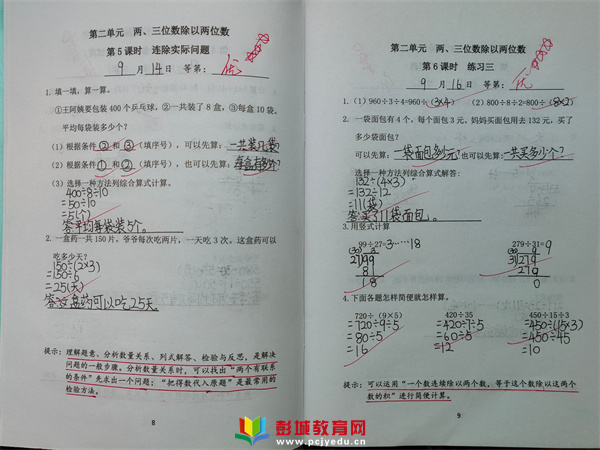 第二单元 两、三位数除以两位数
第5课时 连除实际问题
9月14日 等第：优
1. 填一填，算一算。
①王阿姨要包装400个乒乓球，②一共装了8盒，③每盒10袋。
平均每袋装多少个？
(1) 根据条件（②）和（③）（填序号），可以先算：一共装几袋?
(2) 根据条件（①）和（②）（填序号），也可以先算：每盒有多少个?
(3) 选择一种方法列综合算式计算。
400÷8÷10
=50÷10
=5(个)
答:平均每袋装5个。
2. 一盒药一共150片，爷爷每次吃两片，一天吃3次。这盒药可以
吃多少天？
150÷(2×3)
=150÷6
=25(天)
答:这盒药可以吃25天。
提示：理解题意、分析数量关系、列式解答、检验与反思，是解决
问题的一般步骤。分析数量关系时，可以找出“两个有联系
的条件”先求出一个问题；“把得数代入原题”是最常用的
检验方法。
8
第二单元 两、三位数除以两位数
第6课时 练习三
9月16日 等第：优
1. (1) 960÷3÷4=960÷(3×4) (2) 800÷8÷2=800÷(8×2)
2. 一袋面包有4个，每个面包3元，妈妈买面包用去132元，买了
多少袋面包？
可以先算：一袋面包多少元?也可以先算：一共买多少个?
选择一种方法列综合算式解答：
132÷(4×3)
=132÷12
=11(袋)
答:买了11袋面包。
3.用竖式计算
99÷27=3……18 279÷31=9
4.下面各题怎样简便就怎样算。
720÷(9×5) 420÷35 450÷15÷3
=720÷9÷5 =420÷7÷5 =450÷(15×3)
=80÷5 =60÷5 =450÷45
=16 =12 =10
提示：可以运用“一个数连续除以两个数，等于这个数除以这两个
数的积”进行简便计算。
9
彭城教育网
www.pcjyedu.cn